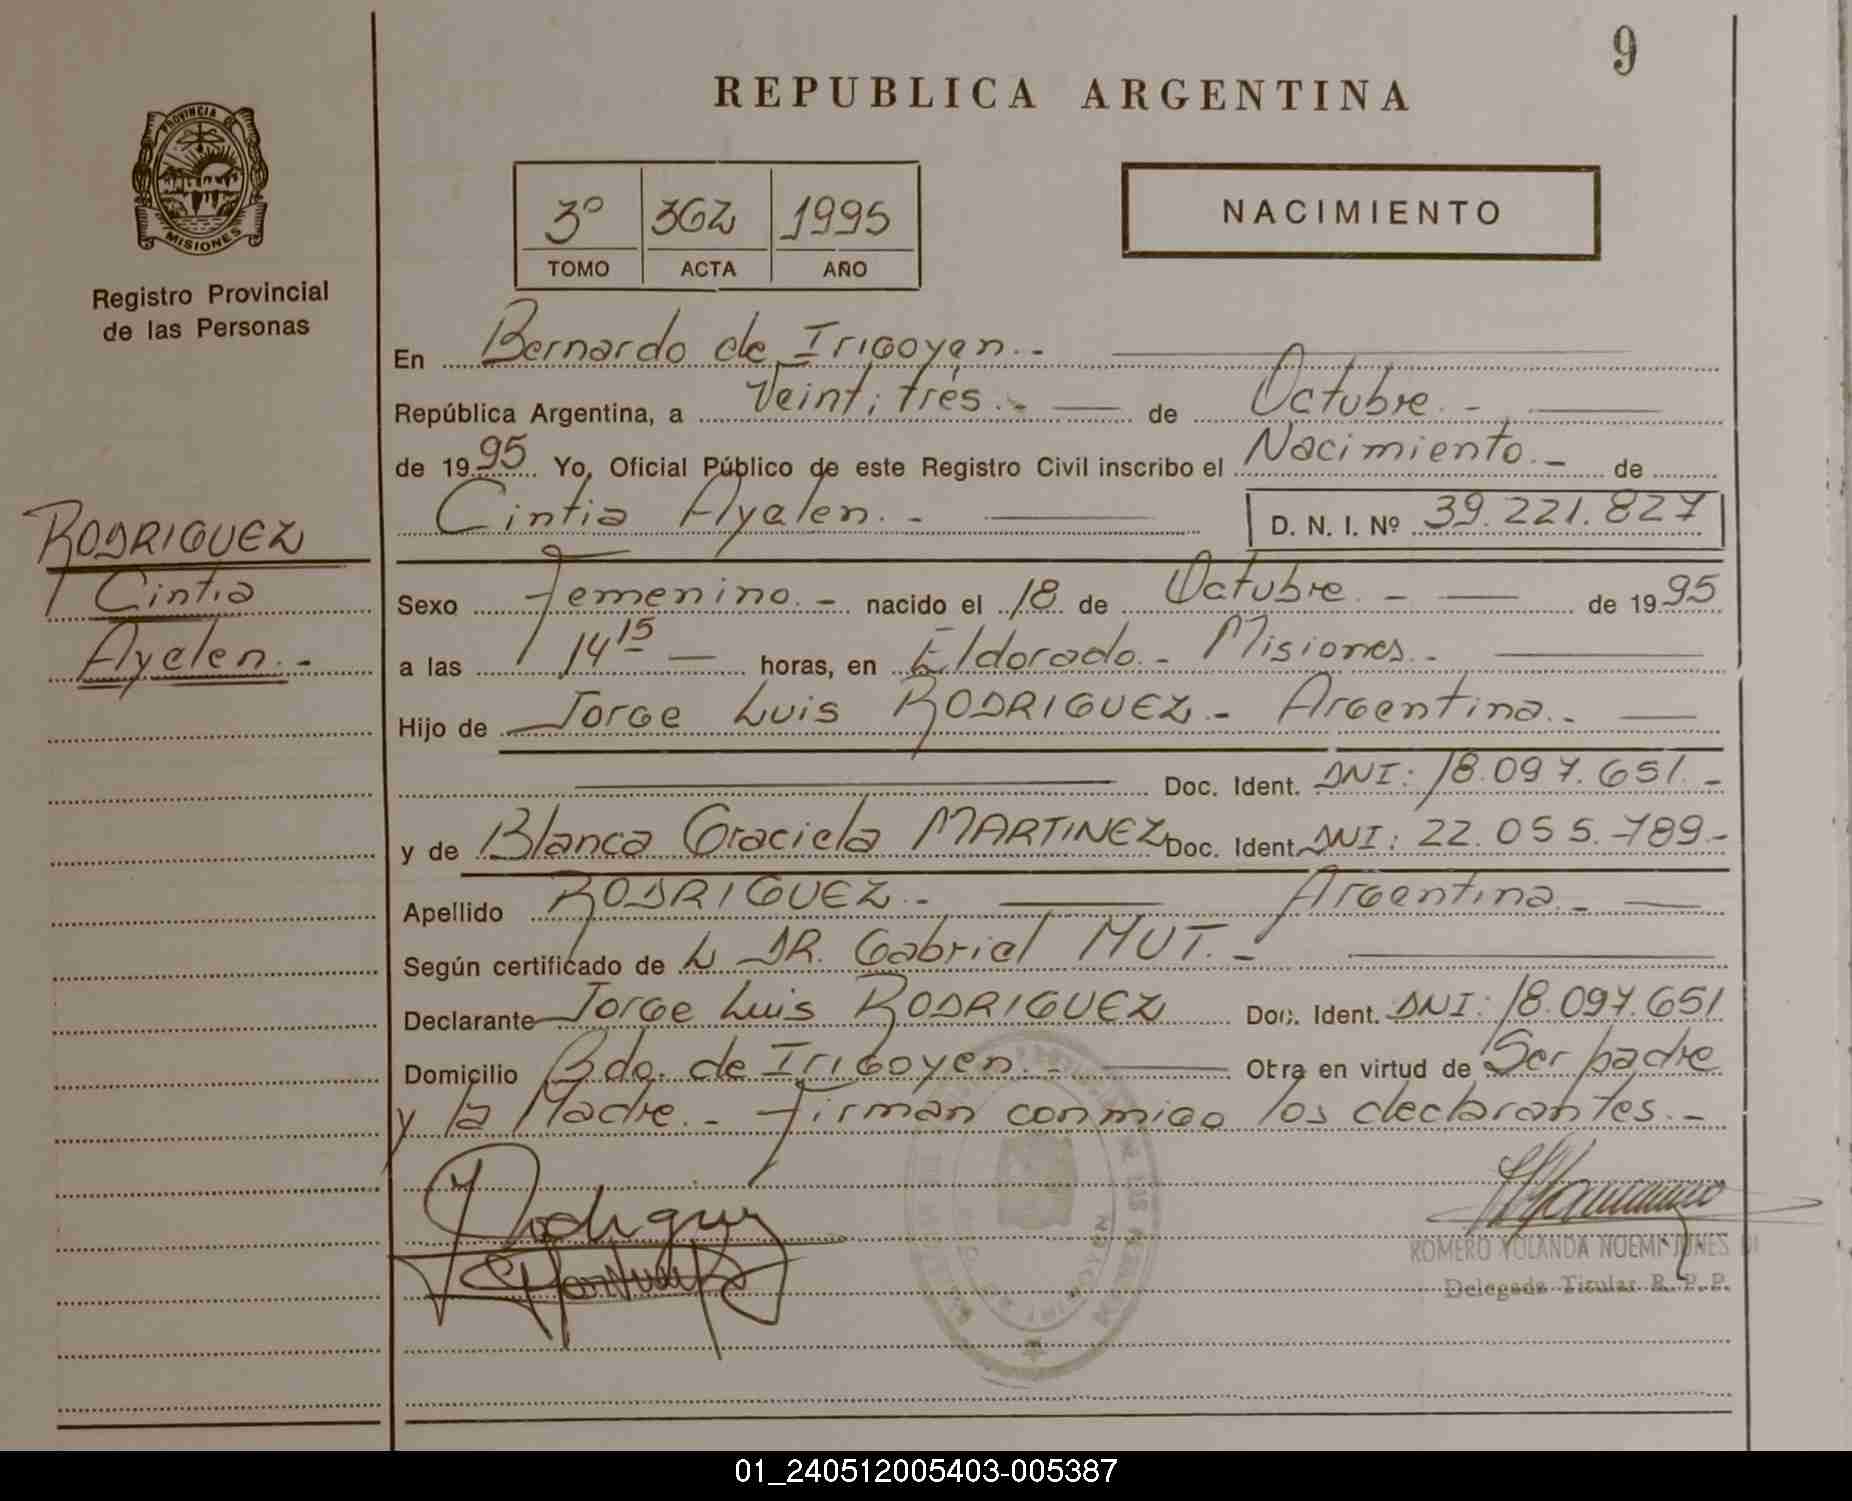 9
REPUBLICA ARGENTINA
PROVINCIA DE
MISIONES
Registro Provincial
de las Personas
3º 362 1995
TOMO ACTA AÑO
NACIMIENTO
En Bernardo de Irigoyen.-
República Argentina, a Veintitrés.- de Octubre.-
de 1995 Yo, Oficial Público de este Registro Civil inscribo el Nacimiento.- de
Cintia Ayelen.- D. N. I. Nº 39.221.827
RODRIGUEZ
Cintia
Ayelen.-
Sexo Femenino.- nacido el 18 de Octubre.- de 1995
a las 14 15 horas, en Eldorado.- Misiones.-
Hijo de Jorge Luis RODRIGUEZ.- Argentina.-
Doc. Ident. DNI: 18.097.651.-
y de Blanca Graciela MARTINEZ Doc. Ident. DNI: 22.055.789.-
Apellido RODRIGUEZ.- Argentina.-
Según certificado de L DR. Gabriel MUT.-
Declarante Jorge Luis RODRIGUEZ Doc. Ident. DNI: 18.097.651
Domicilio Bdo. de Irigoyen.- Obra en virtud de Ser padre
y la Madre.- Firman conmigo los declarantes.-
Rodriguez
ROMERO YOLANDA NOEMI
Delegada Titular R. P. P.
01_240512005403-005387